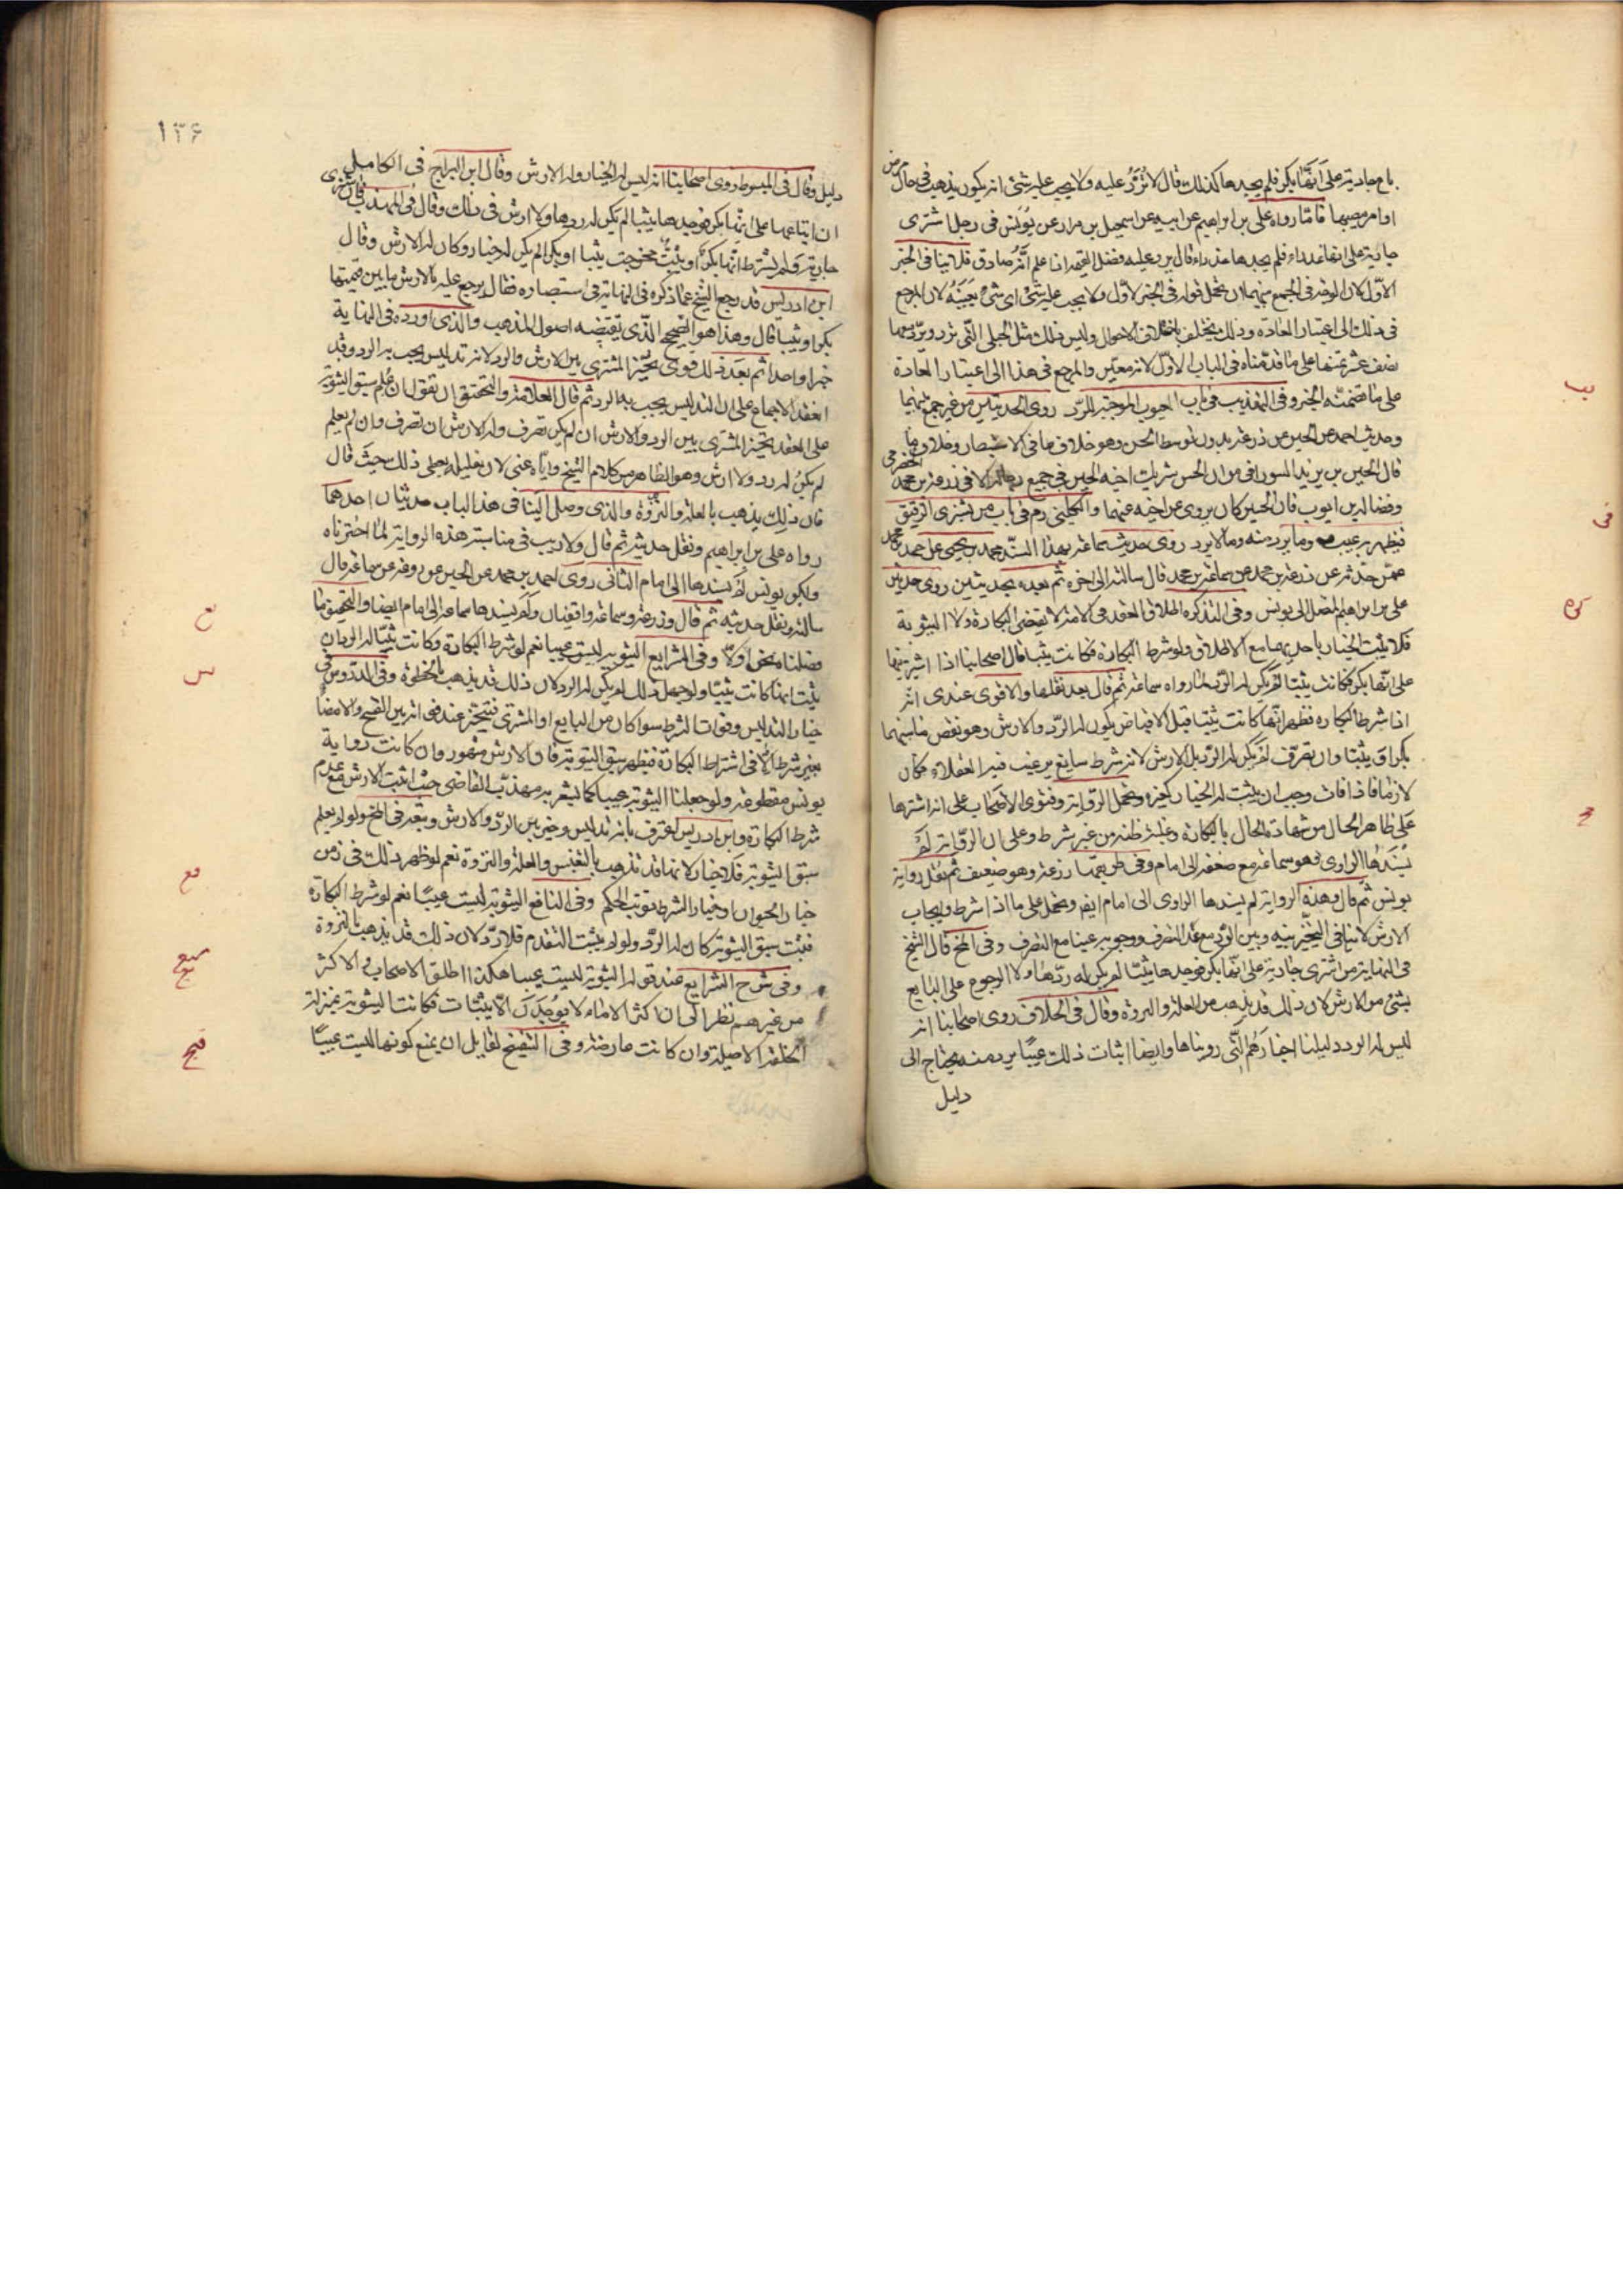 باع جارية على انها بكر فلم يجدها كذلك قال لا ترد عليه ولا يجب عليه شئ انه يكون يذهب في حال مرض
او امر يصيبها فاما رواه على بن ابراهيم عن ابيه عن اسمعيل بن مرار عن يونس في رجل اشترى
جارية على انها عذراء فلم يجدها عذراء قال يرد عليه فضل القيمة اذا علم انه صادق فلا ينافى الخبر
الاول لان الوجه في الجمع بينهما ان نحمل قوله في الخبر الاول ولا يجب عليه شئ اى شئ بعينه لان المرجع
في ذلك الى اعتبار العادة وذلك يختلف باختلاف الاحوال وليس ذلك مثل الحبلى التى ترد ويرد معها
نصف عشر ثمنها على ما قدمناه في الباب الاول لانه معين والمرجع في هذا الى اعتبار العادة
على ما تضمنه الخبر وفى التهذيب في باب العيوب الموجبة للرد روى الحديثين من غير جمع بينهما
وحديث احمد عن الحسين عن زرعة بدون توسط الحسن وهو خلاف ما في الاستبصار وخلاف ما
قال الحسين بن يزيد السورانى من ان الحسن شريك اخيه الحسين في جميع رجاله الا في زرعة بن محمد الحضرمى
وفضالة بن ايوب فان الحسين كان يروى عن اخيه عنهما والكلينى رم في باب من يشترى الرقيق
فيظهر به عيب وما يرد منه وما لا يرد روى حديث سماعة بهذا السند محمد بن يحيى عن احمد بن محمد
عمن حدثه عن زرعة بن محمد عن سماعة بن محمد قال سالته الى اخره ثم بعده بحديثين روى حديث
على بن ابراهيم المتصل الى يونس وفى التذكره اطلاق العقد في الامة لا يقتضى البكارة ولا الثيوبة
فلا يثبت الخيار باحديهما مع الاطلاق ولو شرط البكارة فكانت ثيبا قال اصحابنا اذا اشتريتها
على انها بكر فكانت ثيبا لم يكن له الرد لما رواه سماعة ثم قال بعد نقلها والاقوى عندى انه
اذا شرط البكاره فظهر انها كانت ثيبا قبل الاقباض يكون له الرد والارش وهو نقص ما بينهما
بكرا وثيبا وان تصرف لم يكن له الرد بل الارش لانه شرط سايغ يرغب فيه العقلاء فكان
لازما فاذا فات وجب ان يثبت له الخيار كغيره وتحمل الرواية وفتوى الاصحاب على انه اشتراها
على ظاهر الحال من شهادة الحال بالبكارة وغلبة ظنه من غير شرط وعلى ان الرواية لم
يسندها الراوى وهو سماعة مع ضعفه الى امام وفى طريقها زرعة وهو ضعيف ثم نقل رواية
يونس ثم قال وهذه الرواية لم يسندها الراوى الى امام ايضا وتحمل على ما اذا شرط وايجاب
الارش لا ينافى التخيير بينه وبين الرد مع عدم التصرف ووجوبه عينا مع التصرف وفى المخ قال الشيخ
في النهاية من اشترى جارية على انها بكر فوجدها ثيبا لم يكن له ردها ولا الرجوع على البايع
بشئ من الارش لان ذلك قد يذهب من العلة والنزوة وقال في الخلاف روى اصحابنا انه
ليس له الرد دليلنا اخبارهم التى رويناها وايضا اثبات ذلك عيبا يرد منه يحتاج الى
دليل
١٣۶
دليل وقال في المبسوط روى اصحابنا انه ليس له الخيار وله الارش وقال ابن البراج في الكامل
ان ابتاعها على انها بكر فوجدها ثيبا لم يكن له ردها ولا ارش في ذلك وقال في المهذب فان اشترى
جارية ولم يشترط انها بكر او ثيب فخرجت ثيبا او بكرا لم يكن له خيار وكان له الارش وقال
ابن ادريس قد رجع الشيخ عما ذكره في النهاية في استبصاره فقال يرجع عليه بالارش ما بين قيمتها
بكرا وثيبا قال وهذا هو الصحيح الذى تقتضيه اصول المذهب والذى اورده في النهاية
خبرا واحدا ثم بعد ذلك قوى تخير المشترى بين الارش والرد لانه تدليس يجب به الرد وقد
انعقد الاجماع على ان التدليس يجب به الرد ثم قال العلامة والتحقيق ان نقول ان علم سبق الثيوبة
على العقد تخير المشترى بين الرد والارش ان لم يكن تصرف وله الارش ان تصرف وان لم يعلم
لم يكن له رد ولا ارش وهو الظاهر من كلام الشيخ واياه عنى لان تعليله يعطى ذلك حيث قال
فان ذلك يذهب بالعلة والنزوة والذى وصل الينا في هذا الباب حديثان احدهما
رواه على بن ابراهيم ونقل حديثه ثم قال ولا ريب في مناسبة هذه الرواية لما اخترناه
ولكن يونس لم يسندها الى امام الثانى روى احمد بن محمد عن الحسين عن زرعة عن سماعة قال
سالته ونقل حديثه ثم قال وزرعة وسماعة واقفيان ولم يسندها سماعة الى امام ايضا والتحقيق ما
فصلناه نحن اولا وفى الشرايع الثيوبة ليس عيبا نعم لو شرط البكارة وكانت ثيبا له الرد ان
ثبت انها كانت ثيبا ولو جهل ذلك لم يكن له الرد لان ذلك قد يذهب بالخطوة وفى الدروس في
خيار التدليس وفوات الشرط سوا كان من البايع او المشترى فيتخير عند فواته بين الفسخ والامضاء
بغير شرط الا في اشتراط البكارة فيظهر سبق الثيوبة فان الارش مشهور وان كانت رواية
يونس مقطوعة ولو جعلنا الثيوبة عيبا كما يشعر به مهذب القاضى حيث اثبت الارش مع عدم
شرط البكارة وابن ادريس اعترف بانه تدليس وخير بين الرد والارش وتبعه في المخ ولو لم يعلم
سبق الثيوبة فلا خيار لانها قد تذهب بالتعنيس والعلة والنزوة نعم لو ظهر ذلك في زمن
خيار الحيوان او خيار الشرط توجه الحكم وفى النافع الثيوبة ليست عيبا نعم لو شرط البكارة
فثبت سبق الثيوبة كان له الرد ولو لم يثبت التقدم فلا رد لان ذلك قد يذهب بالنزوة
وفى شرح الشرايع عند قوله الثيوبة ليست عيبا هكذا اطلق الاصحاب والاكثر
من غيرهم نظرا الى ان اكثر الاماء لا يوجدن الا ثيبات فكانت الثيوبة بمنزلة
الخلقة الاصلية وان كانت عارضة وفى التنقيح لقايل ان يمنع كونها ليست عيبا